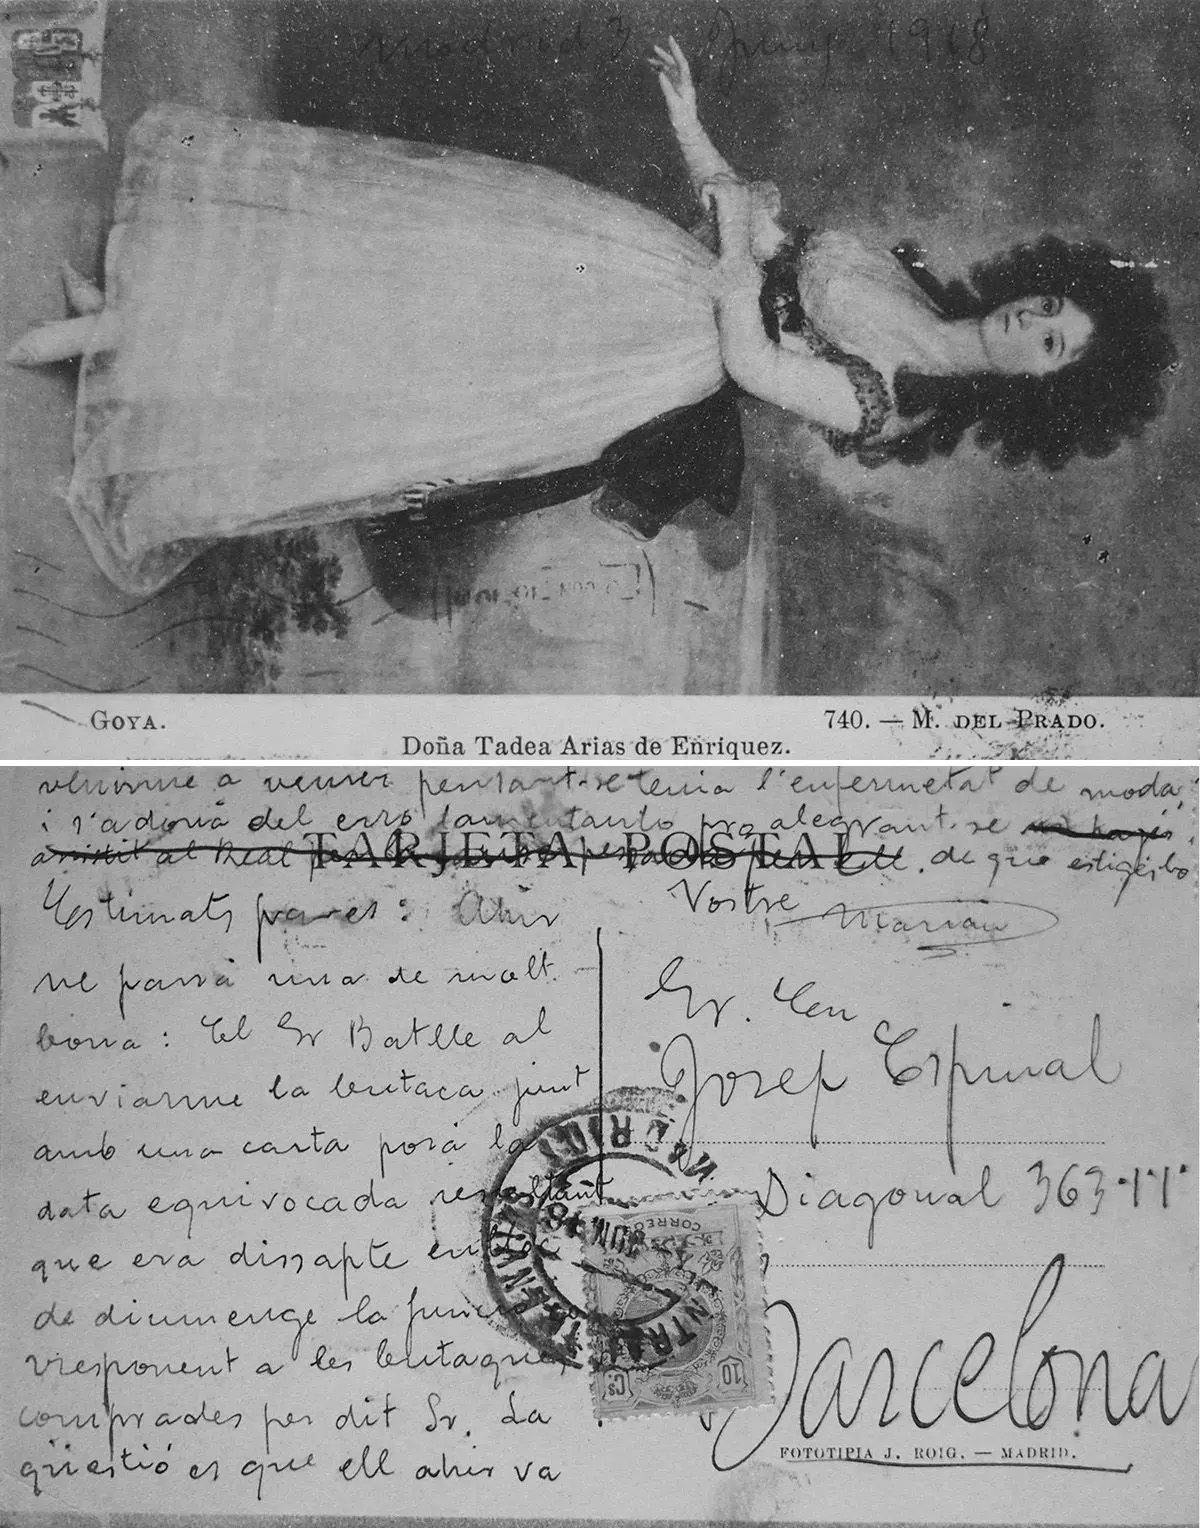 Madrid 3 Juny 1918
GOYA.
740. — M. DEL PRADO.
Doña Tadea Arias de Enriquez.
a veurer pensant-se tenia l'enfermetat de moda,
i s'adonà del erro lamentantlo pro alegrant-se
assistit al Real de que estigués bo
TARJETA POSTAL
Vostre
Marian
Estimats pares: Ahir
me passà una de molt
bona: El Sr Batlle al
enviarme la butaca junt
amb una carta posà la
data equivocada resultant
que era dissapte enlloc
de diumenge la funció
rresponent a les butaques
comprades per dit Sr. La
qüestió es que ell ahir va
Sr. En
Josep Espinal
Diagonal 363-1-1
Barcelona
MADRID
CENTRAL
JUN 18
CORREOS
10 Cs
FOTOTIPIA J. ROIG. — MADRID.